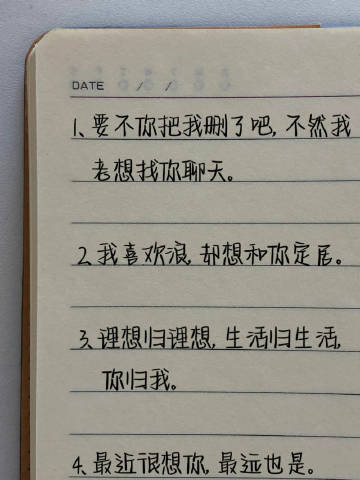 DATE / /
1、要不你把我删了吧,不然我
老想找你聊天。
2、我喜欢浪,却想和你定居。
3、理想归理想,生活归生活,
你归我。
4、最近很想你,最远也是。